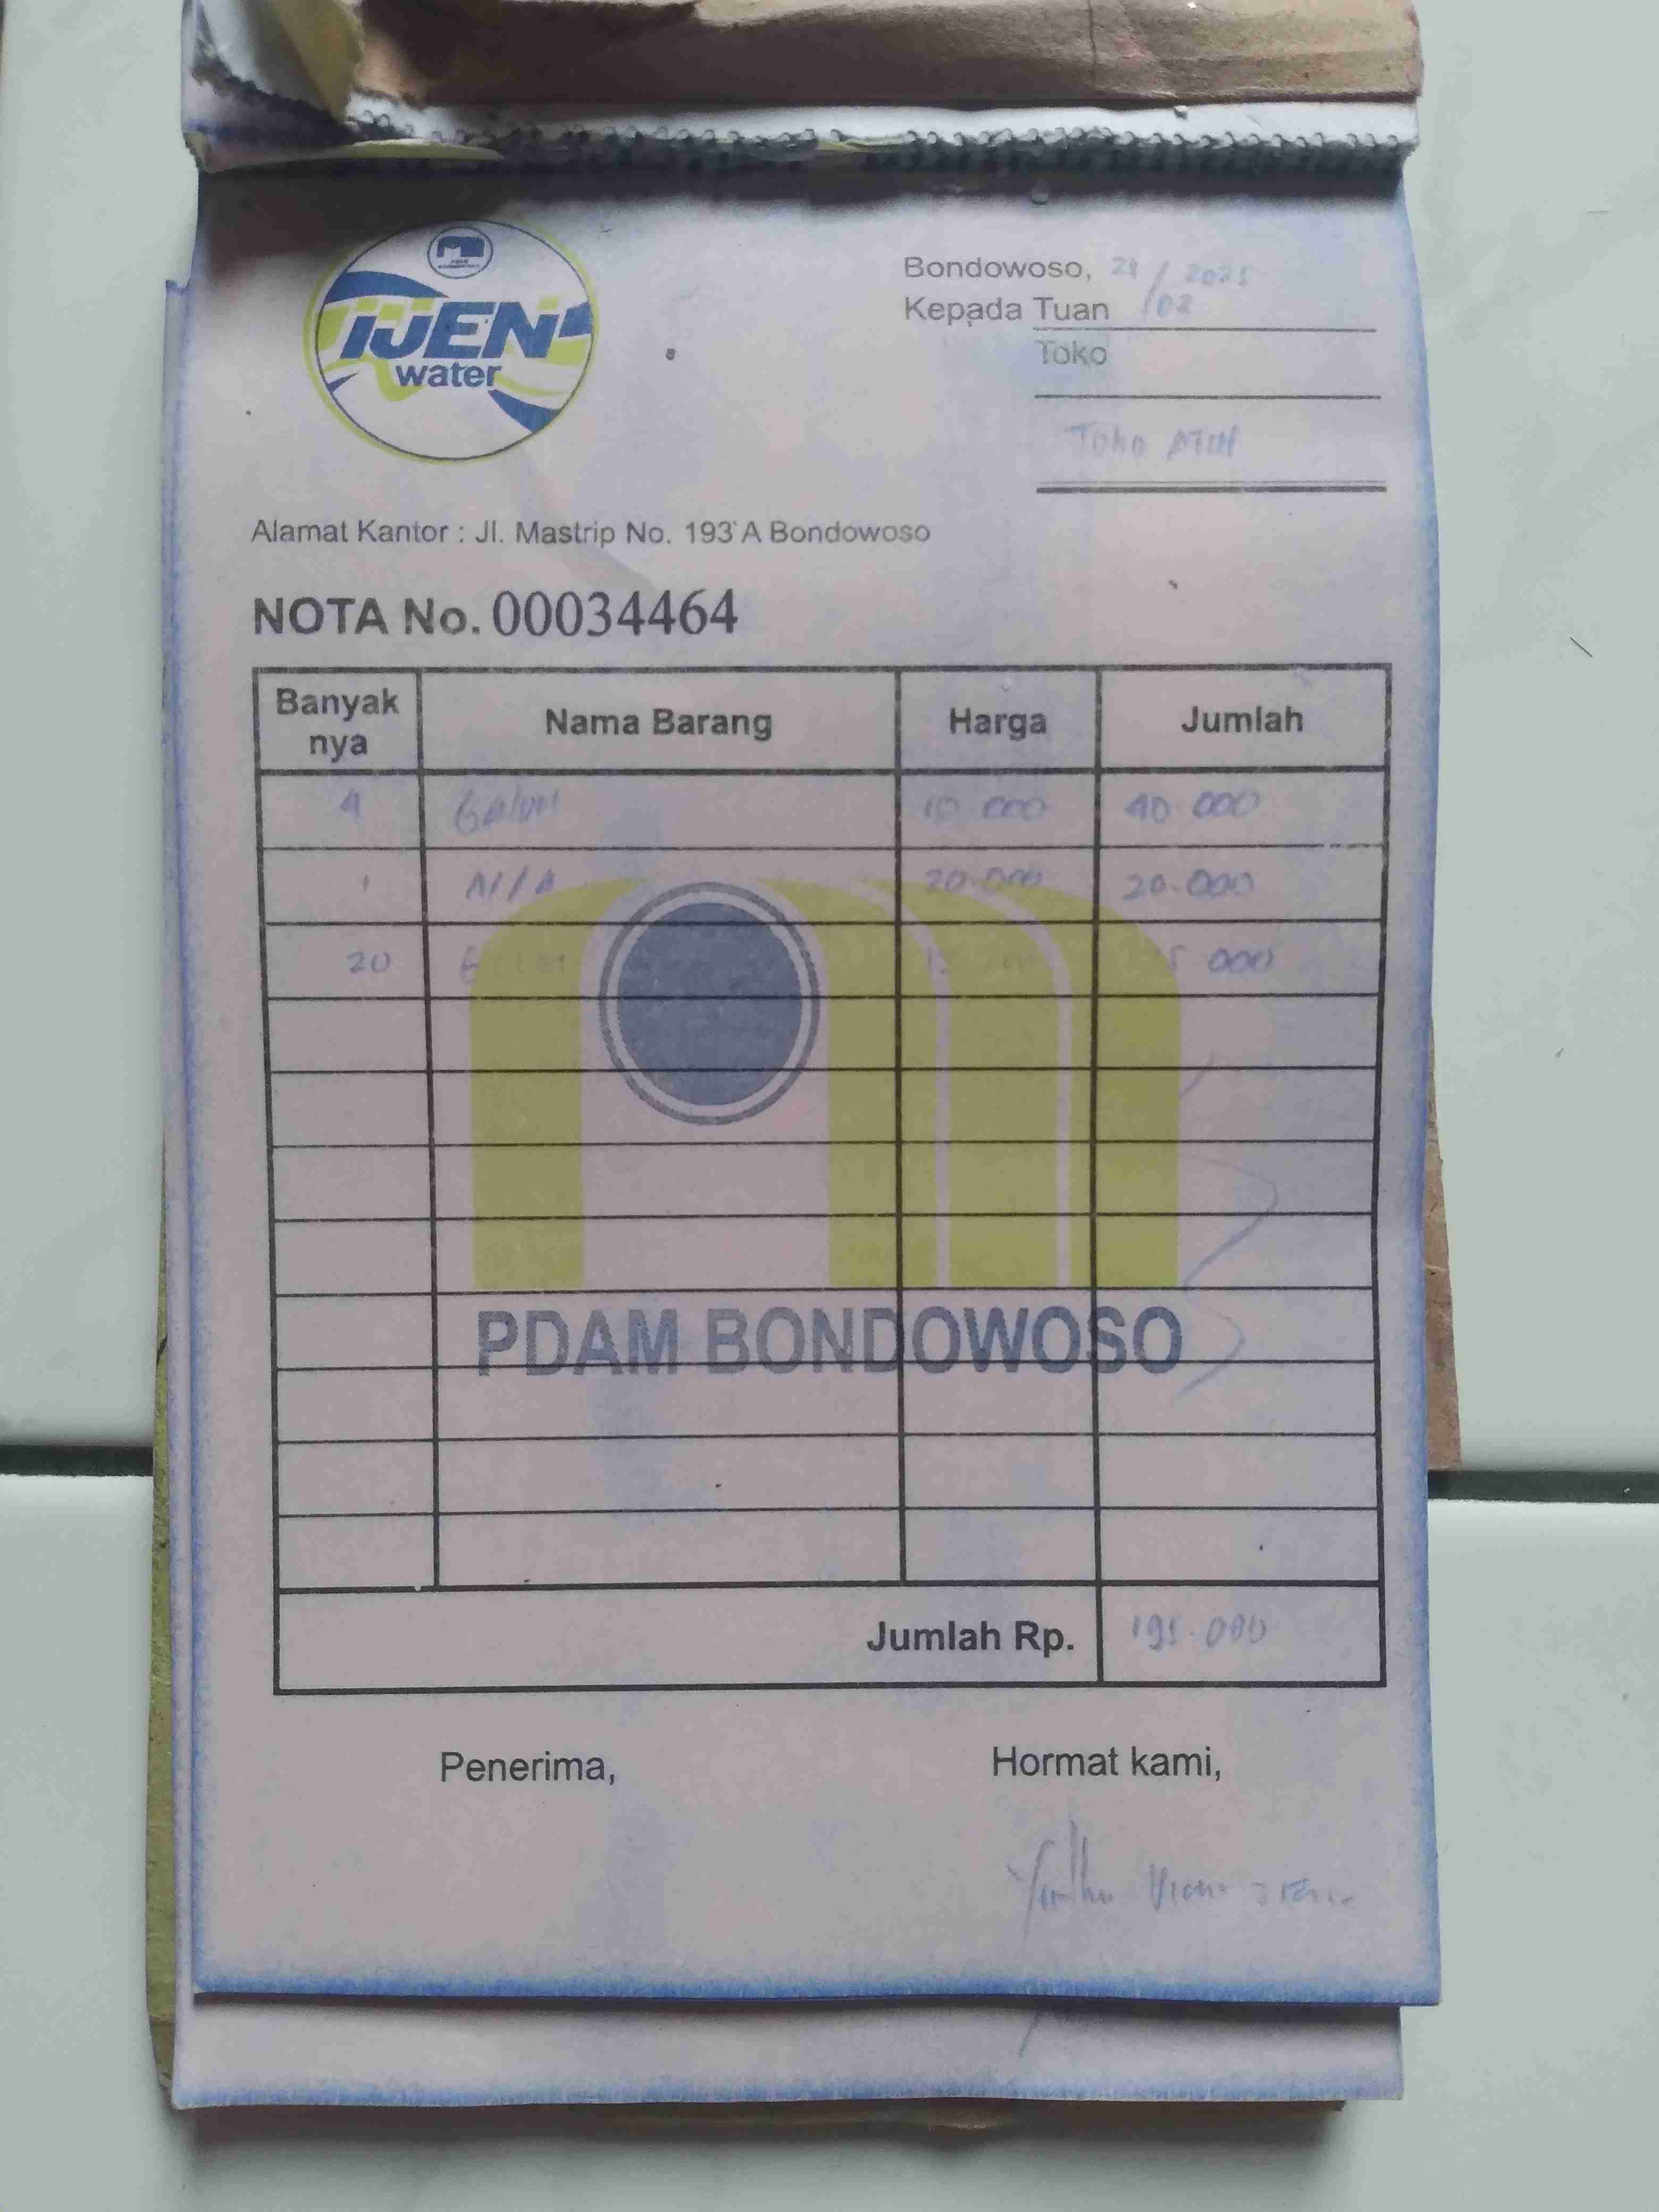 IJEN
water
Bondowoso, 21/02 2025
Kepada Tuan
Toko
Toko
Alamat Kantor : Jl. Mastrip No. 193 A Bondowoso
NOTA No. 00034464
Banyak nya Nama Barang Harga Jumlah
4 Galon 10.000 40.000
1 20.000 20.000
20 000
PDAM BONDOWOSO
Jumlah Rp. 195.000
Penerima, Hormat kami,